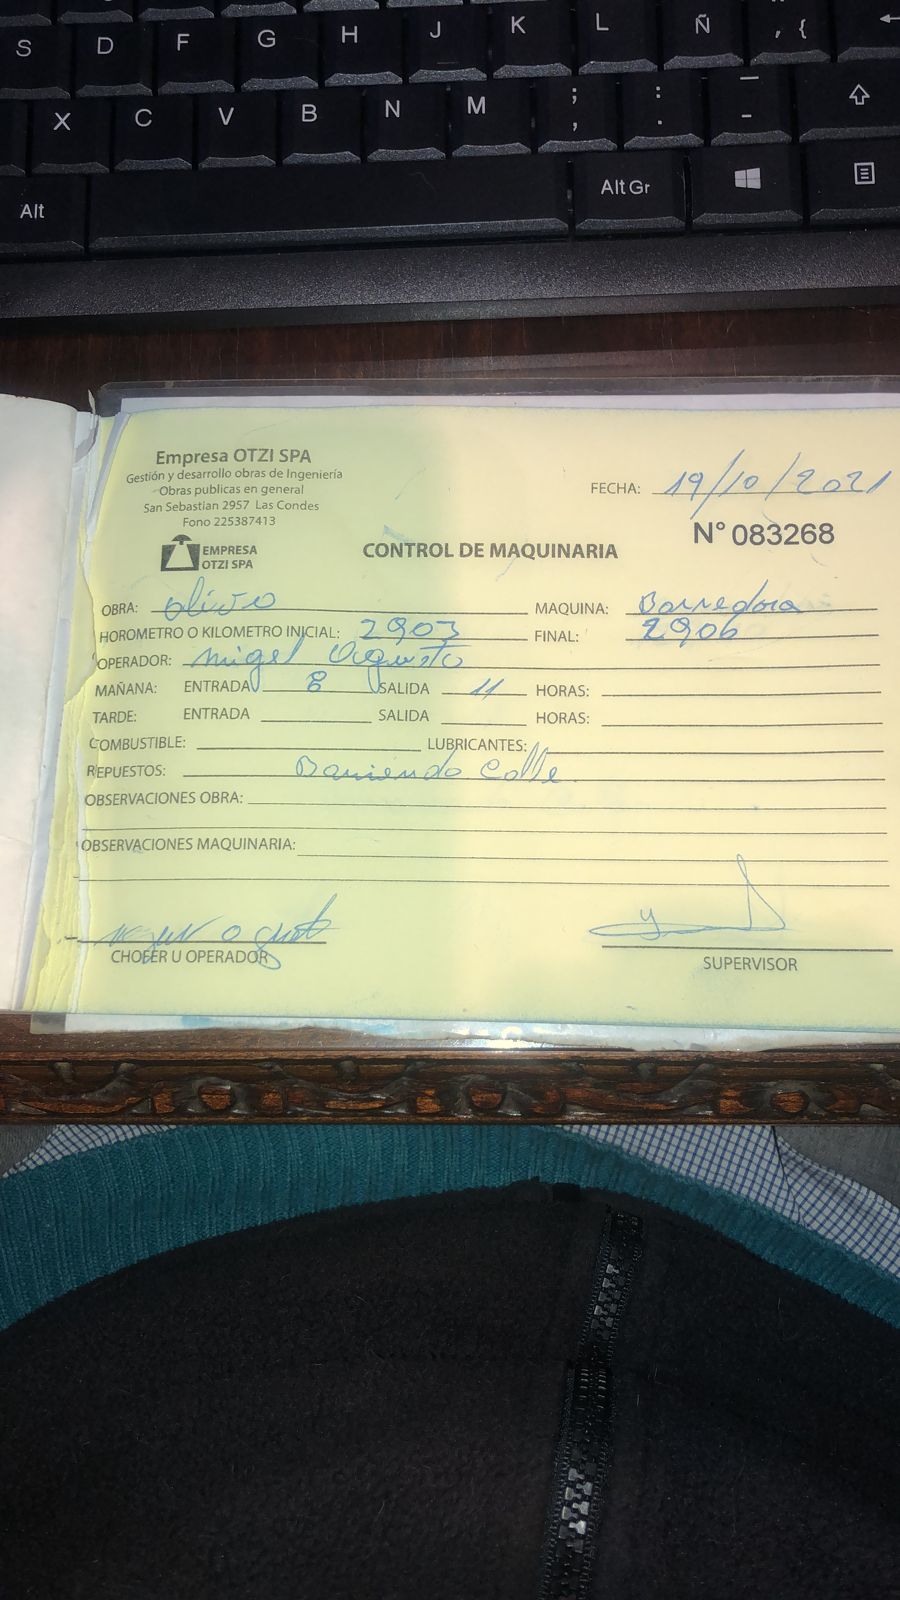 S D F G H J K L Ñ , {
X C V B N M ; , : . _ -
Alt Alt Gr
Empresa OTZI SPA
Gestión y desarrollo obras de Ingeniería
Obras publicas en general
San Sebastian 2957 Las Condes
Fono 225387413
EMPRESA
OTZI SPA
FECHA: 19/10/2021
CONTROL DE MAQUINARIA
N° 083268
OBRA: olivo MAQUINA: Barredora
HOROMETRO O KILOMETRO INICIAL: 2903 FINAL: 2906
OPERADOR: migel Ogusto
MAÑANA: ENTRADA 8 SALIDA 11 HORAS:
TARDE: ENTRADA SALIDA HORAS:
COMBUSTIBLE: LUBRICANTES:
REPUESTOS: Barriendo Calle
OBSERVACIONES OBRA:
OBSERVACIONES MAQUINARIA:
CHOFER U OPERADOR
SUPERVISOR